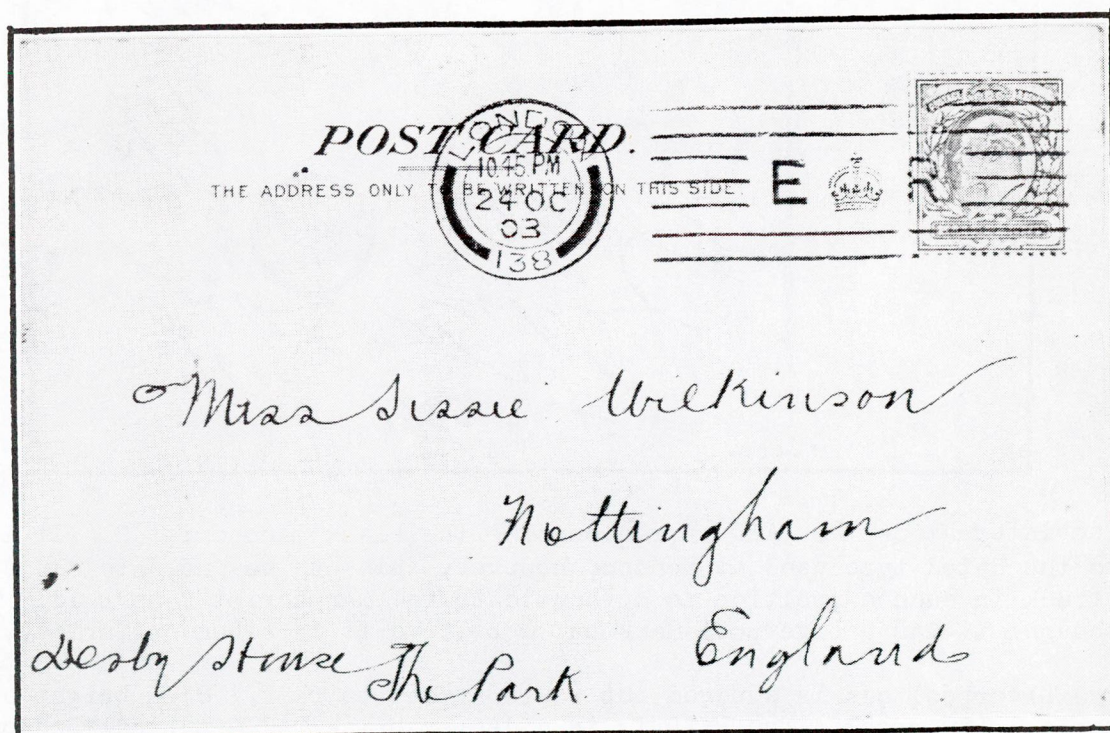 POST CARD.
THE ADDRESS ONLY TO BE WRITTEN ON THIS SIDE.
LONDON
10.45 PM
24 OC
03
138
E R
Miss Sissie Wilkinson
Nottingham
England
Derby House The Park